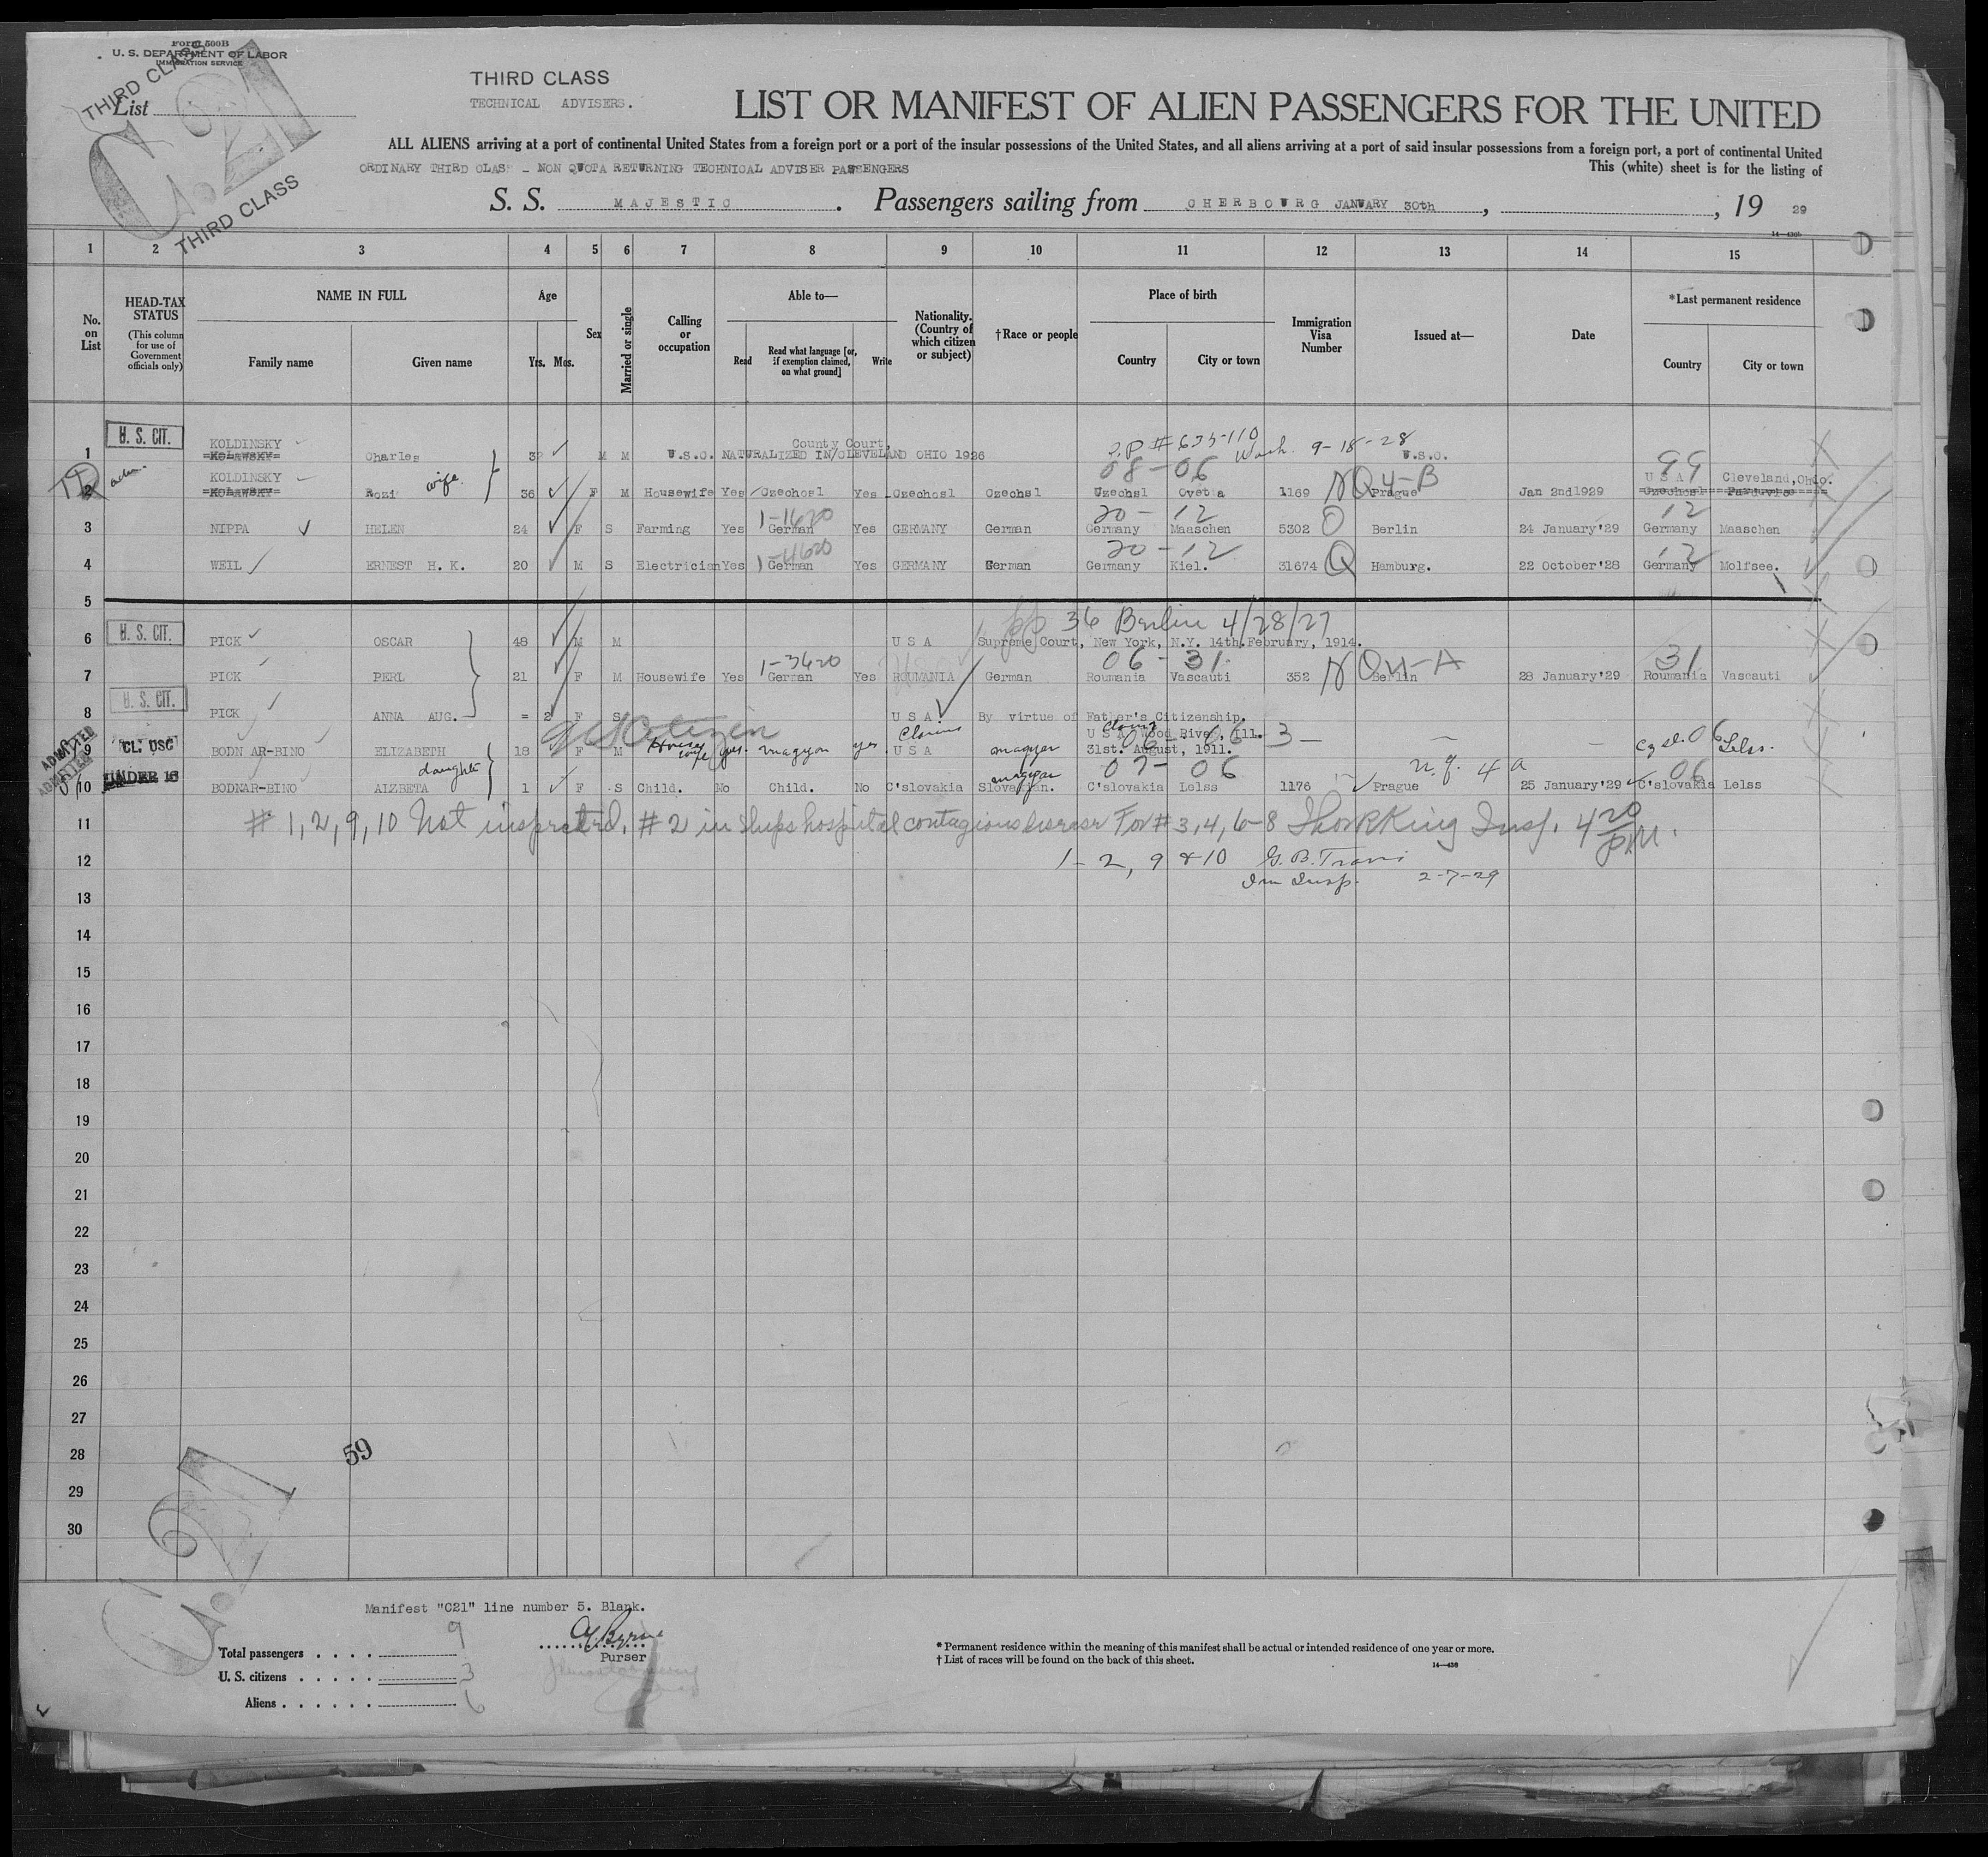 Form 500B
U. S. DEPARTMENT OF LABOR
IMMIGRATION SERVICE
THIRD CLASS
List
C.21
THIRD CLASS
THIRD CLASS
TECHNICAL ADVISERS.
LIST OR MANIFEST OF ALIEN PASSENGERS FOR THE UNITED
ALL ALIENS arriving at a port of continental United States from a foreign port or a port of the insular possessions of the United States, and all aliens arriving at a port of said insular possessions from a foreign port, a port of continental United
ORDINARY THIRD CLAS - NON QUOTA RETURNING TECHNICAL ADVISER PASSENGERS
This (white) sheet is for the listing of
S. S. MAJESTIC. Passengers sailing from CHERBOURG JANUARY 30th, , 19 29
14-436b
1 2 3 4 5 6 7 8 9 10 11 12 13 14 15
No. on List
HEAD-TAX STATUS
(This column for use of Government officials only)
NAME IN FULL
Family name Given name
Age
Yrs. Mos.
Sex
Married or single
Calling or occupation
Able to—
Read Read what language [or, if exemption claimed, on what ground] Write
Nationality. (Country of which citizen or subject)
† Race or people
Place of birth
Country City or town
Immigration Visa Number
Issued at—
Date
*Last permanent residence
Country City or town
U. S. CIT.
County Court, P.P # 635-110 Wash. 9-18-28
1 KOLDINSKY KOLAWSKY Charles 32 M M U.S.C. NATURALIZED IN/CLEVELAND OHIO 1926 U.S.C.
08-06 99
2 adm. KOLDINSKY KOLAWSKY Rozi wife 36 F M Housewife Yes Czechosl Yes Czechosl Czechsl Czechsl 1169 NQ 4-B Prague Jan 2nd1929 U S A Czechosl Cleveland, Ohio.
1-1620 20-12 12
3 NIPPA HELEN 24 F S Farming Yes German Yes GERMANY German Germany Maaschen 5302 Q Berlin 24 January'29 Germany Maaschen
1-4620 20-12 12
4 WEIL ERNEST H. K. 20 M S Electrician Yes German Yes GERMANY German Germany Kiel. 31674 Q Hamburg. 22 October'28 Germany Molfsee.
5
U. S. CIT. pp 36 Berlin 4/28/27
6 PICK OSCAR 48 M M U S A Supreme Court, New York, N.Y. 14th.February, 1914.
1-3620 06-31 31
7 PICK PERL 21 F M Housewife Yes German Yes ROUMANIA German Roumania Vascauti 352 NQ 4-A Berlin 28 January'29 Roumania Vascauti
U. S. CIT.
8 PICK ANNA AUG. = 2 F S U S A By virtue of Father's Citizenship.
US Citizen
ADMITTED CL. USC
9 BODN AR-BINO ELIZABETH 18 F M House wife yes magyar yes Claims U S A magyar Claims U S A Wood River, Ill. 31st. August, 1911. 06-06 3- Cz sl. 06 Lelss.
ADMITTED UNDER 16
10 BODNAR-BINO daughter ALZBETA 1 F S Child. No Child. No C'slovakia magyar Slovakian. 07-06 C'slovakia Lelss 1176 Prague n.q. 4 a 25 January'29 06 C'slovakia Lelss
11 # 1, 2, 9, 10 Not inspected. # 2 in Ships hospital contagious disease For # 3, 4, 6-8 Insp. 4 20 P.M.
12 1-2, 9 & 10 G. B. Travis
Im Insp. 2-7-29
13
14
15
16
17
18
19
20
21
22
23
24
25
26
27
28
29
30
59
C.21
Manifest "C21" line number 5. Blank.
Total passengers . . . . 9
U. S. citizens . . . . . 3
Aliens . . . . . . 6
Purser
* Permanent residence within the meaning of this manifest shall be actual or intended residence of one year or more.
† List of races will be found on the back of this sheet.
14-436